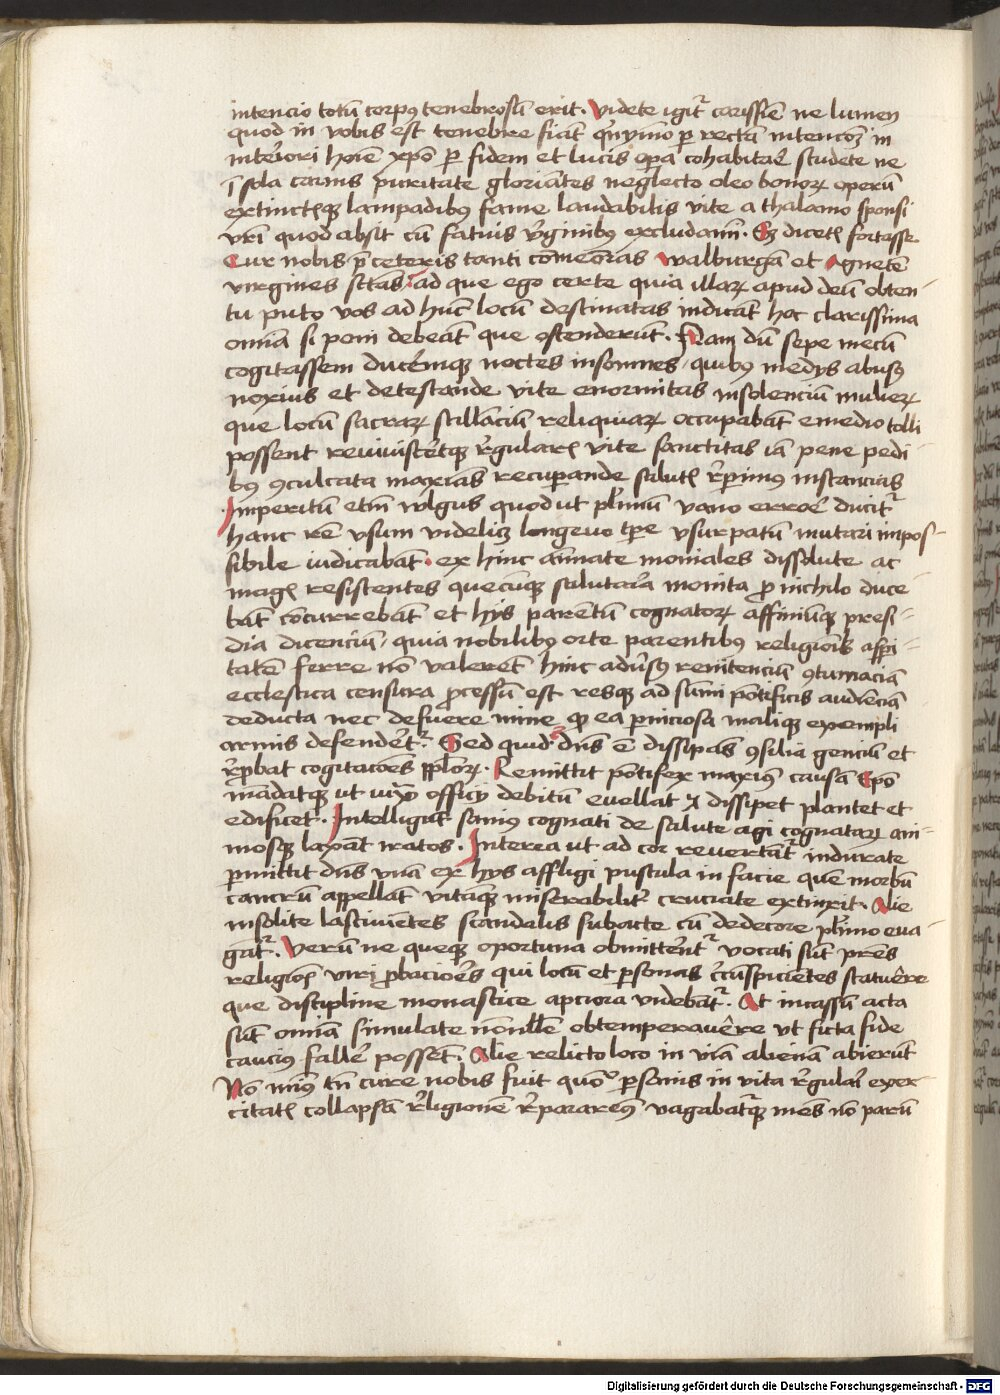 intencio totū corpꝰ tenebrosū erit. Videte igit᷑ carissīe ne lumen
quod in vobis est tenebre fiāt qn̄ymo ꝑ rectā intencōꝫ in
inte᷑iori hoīe xp̄o ꝑ fidem et lucis oꝑa cohabitar̄ studete ne
ī sola carnis puritate gloriātes neglecto oleo bonoꝝ operū
extinctꝭqꝫ lampadibꝰ fame laudabilis vite a thalamo sponsi
vr̄i quod absit cū fatuis v᷑ginibꝰ excludamī. Sꝫ dicetꝭ fortasse
Cur nobis p̄ ceteris tanti cōmeōras walburgā et Agnetē
virgines sctās? ad que ego certe quia illaꝝ apud deū obten-
tu puto vos ad hūc locū destinatas indicāt hoc clarissima
omīa si poni debeāt que ostenderūt. Nam dū sepe mecū
cogitassem ducēremqꝫ noctes insomnes, quibꝰ medijs abusꝰ
noxius et detestande vite enormitas insolenciū mulieꝝ
que locū sacraꝝ scillāciū reliquiaꝝ occupabāt e medio tolli
possent reuiuisc̄etqꝫ r̄gularꝭ vite sanctitas iā pene pedi-
bꝰ ꝯculcata maxīas recuꝑande salutꝭ r̄ꝑimꝰ instancias
Imperitū etīm wlgus quod ut pl᷑imū vano errore ducit᷑
hanc rē vsum videlicꝫ longeuo tꝑe vsurpatū mutari impos-
sibile iudicabāt. ex hinc aīmate moniales dissolute ac
magꝭ resistentes quecūqꝫ salutar̄a monita ꝓ nichilo duce-
bāt concurrebāt et hijs parentū cognatoꝝ affiniūqꝫ presi-
dia dicenciū, quia nobilibꝰ orte parentibꝰ religiōis asp̄i-
tatē ferre nō valerēt hinc adu᷑sꝰ renitenciū ꝯtumaciā
ecclesiastica censura ꝓcessū est resqꝫ ad sūmi pōtificis audiēciā
deducta nec defuere mine qꝫ ea ꝑniciosa maliqꝫ exempli
armis defenderēt᷑. Sed quid? dn̄s ē dissipās ꝯsilia genciū et
r̄ꝓbat cogitacōes pp̄loꝝ. Remittit pōtifex maxiꝰ causā Ep̄o
mādatqꝫ ut iuxᵃ officij debitū euellat ⁊ dissipet plantet et
edificet. Intelligūt sanius cognati de salute agi cognataꝝ ani-
mosqꝫ laxāt iratos. Interea ut ad cor reuertāt᷑ indurate
ꝑmittit dn̄s vnā ex hijs affligi pustula in facie quē morbū
cancrū appellāt vitāqꝫ miserabilit᷑ cruciate extinxit. Alie
insolite lasciuiētes scandalis subacte cū dedecore pl᷑imo eua-
gāt᷑. Verū ne queqꝫ oportuna obmitterēt᷑ vocati sūt pr̄es
religiosꝭ viri ꝓbaciores qui locū et ꝑsonas c᷑cūspiciētes statuêre
que discipline monastice apciora videbāt᷑. At incassū acta
sūt omīa simulate nōnulle obtemperauêre vt ficta fide
cauciꝰ falle᷑ possēt. Alie relicto loco in viā alienā abierūt
Nō miꝰ tn̄ cure nobis fuit quōº ꝑsonis in vita r̄gulari exer-
citatꝭ collapsā r̄ligionē r̄pararemꝰ vagabat᷑qꝫ mēs nō parū
Digitalisierung gefördert durch die Deutsche Forschungsgemeinschaft - DFG